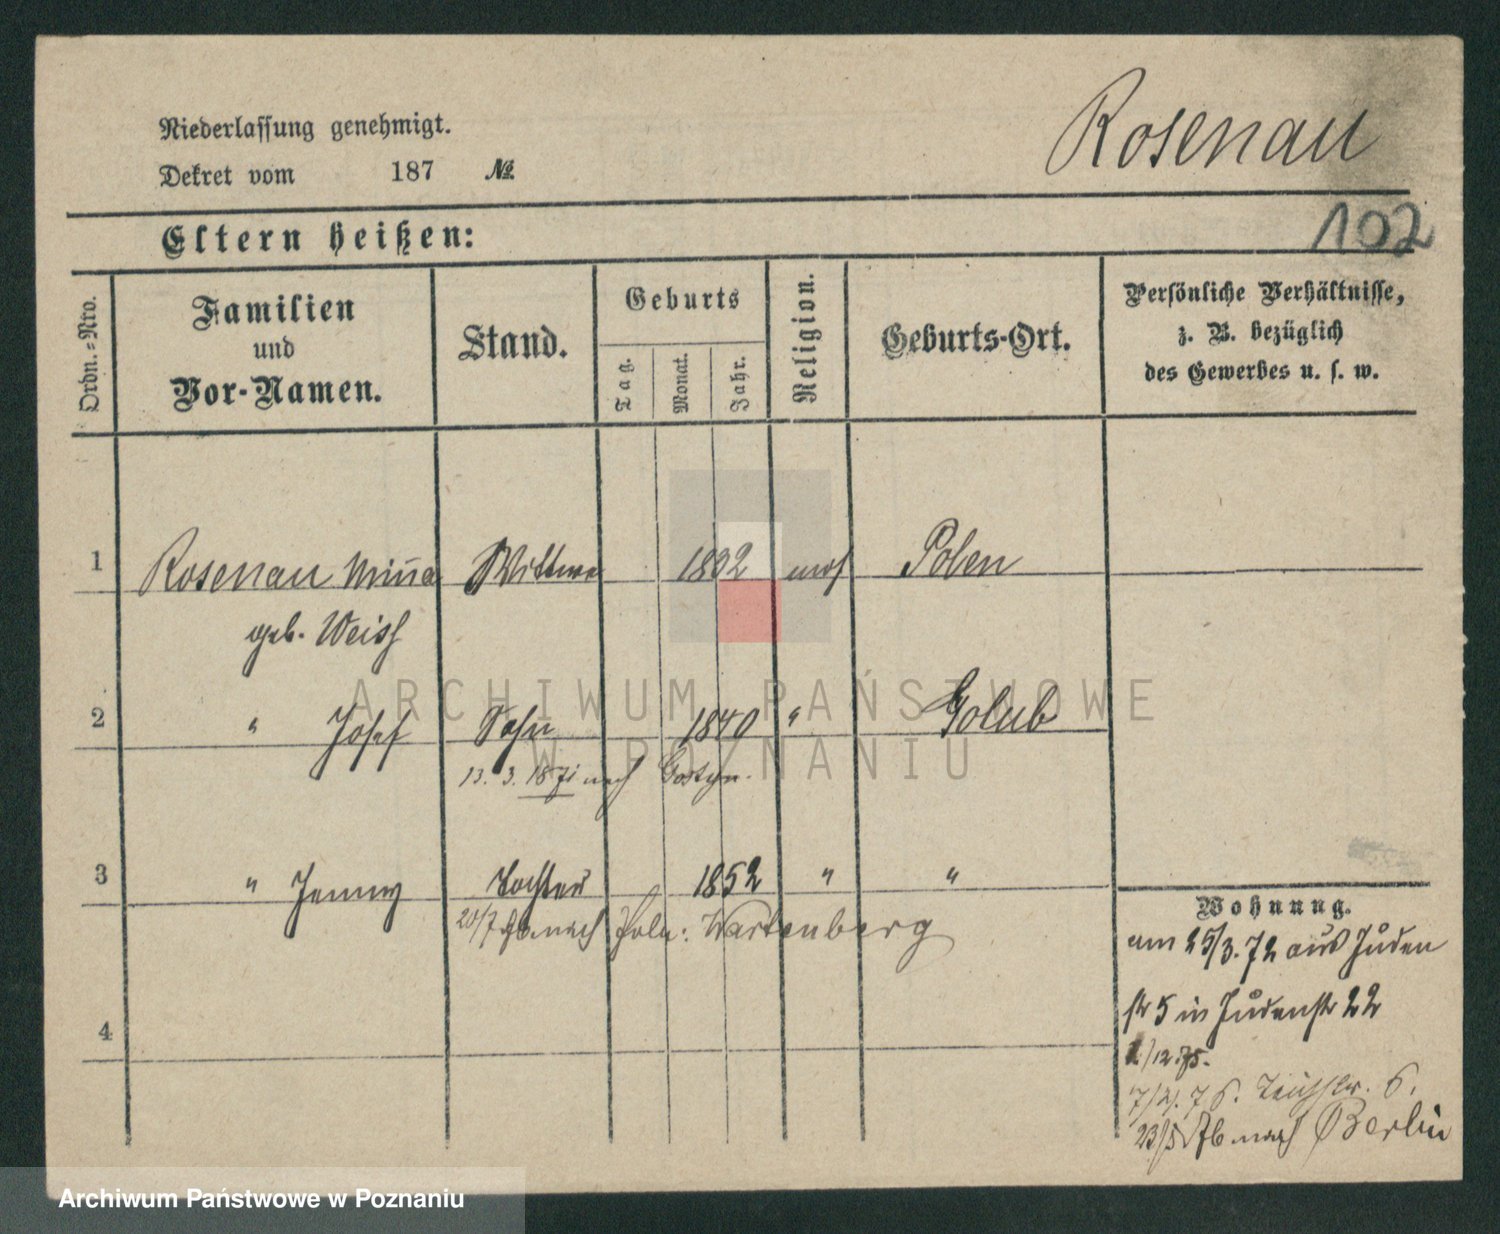 Niederlassung genehmigt.
Rosenau
Dekret vom 187 №
Eltern heißen:
102
Ordn.-Nro.
Familien
und
Vor-Namen.
Stand.
Geburts
Tag.
Monat.
Jahr.
Religion.
Geburts-Ort.
Persönliche Verhältnisse,
z. B. bezüglich
des Gewerbes u. s. w.
1 Rosenau Mina Wittwe 1832 mos Polen
geb. Weiss
2 " Josef Sohn 1840 " Golub
13. 3. 1871 nach Gostyn.
3 " Jenny Tochter 1852 " "
20/7 Ab. nach Poln: Wartenberg
4
Wohnung.
am 25/3. 72 aus Juden
str 5 in Judenstr 22
1/12. 75.
7/4. 76. 6.
23/5 Ab. nach Berlin
ARCHIWUM PAŃSTWOWE
W POZNANIU
Archiwum Państwowe w Poznaniu